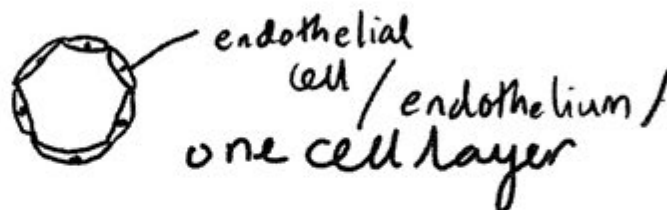 endothelial
cell / endothelium /
one cell layer